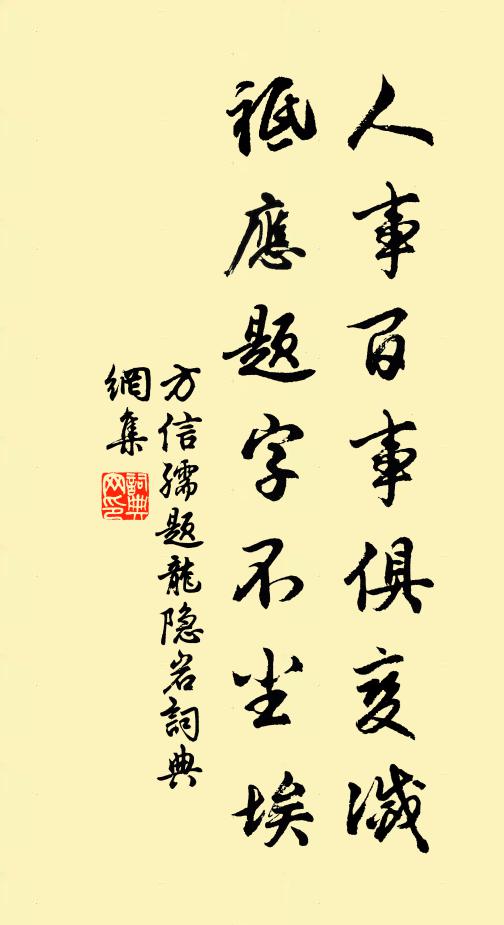 人事百事俱变滅
祗應题字不尘埃
方信孺题龍隐岩詞典
網集
詞典网印